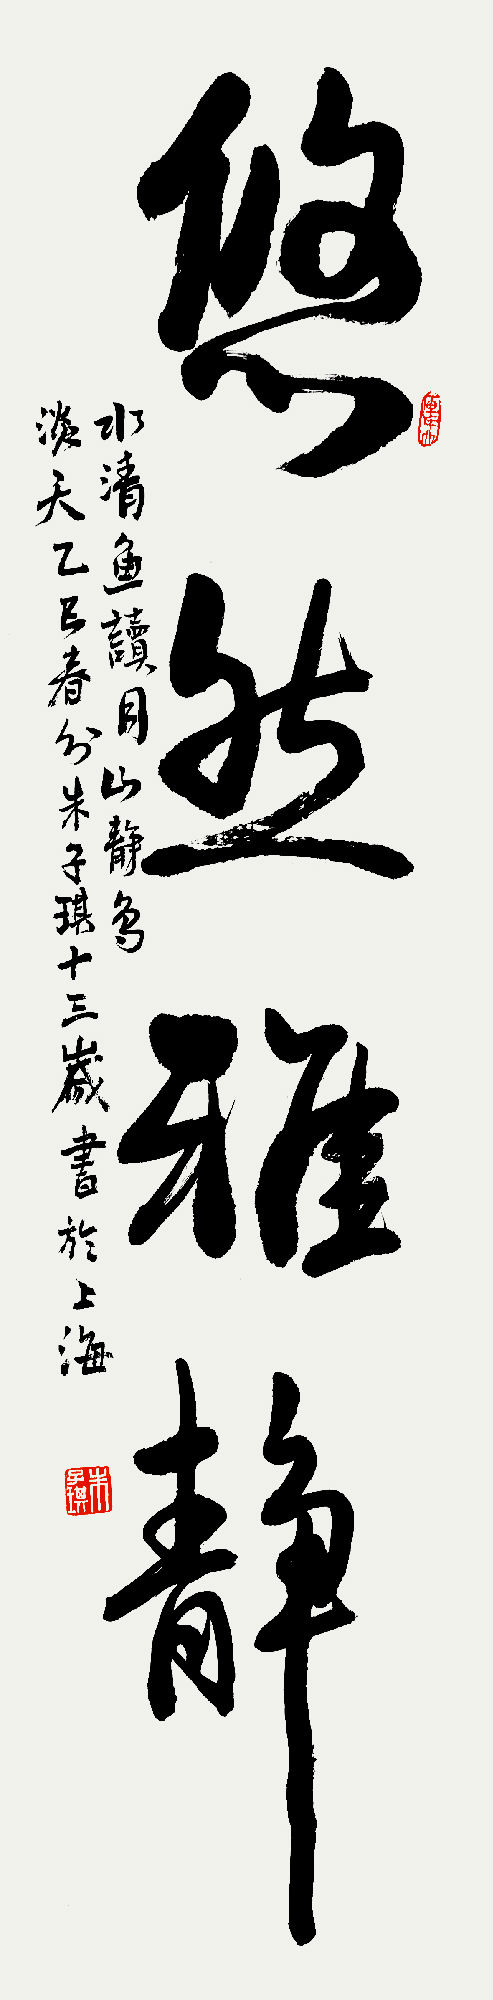 悠然雅静
水清鱼讀月山静鸟
淡天乙巳春分朱子琪十三歲書於上海
朱子琪